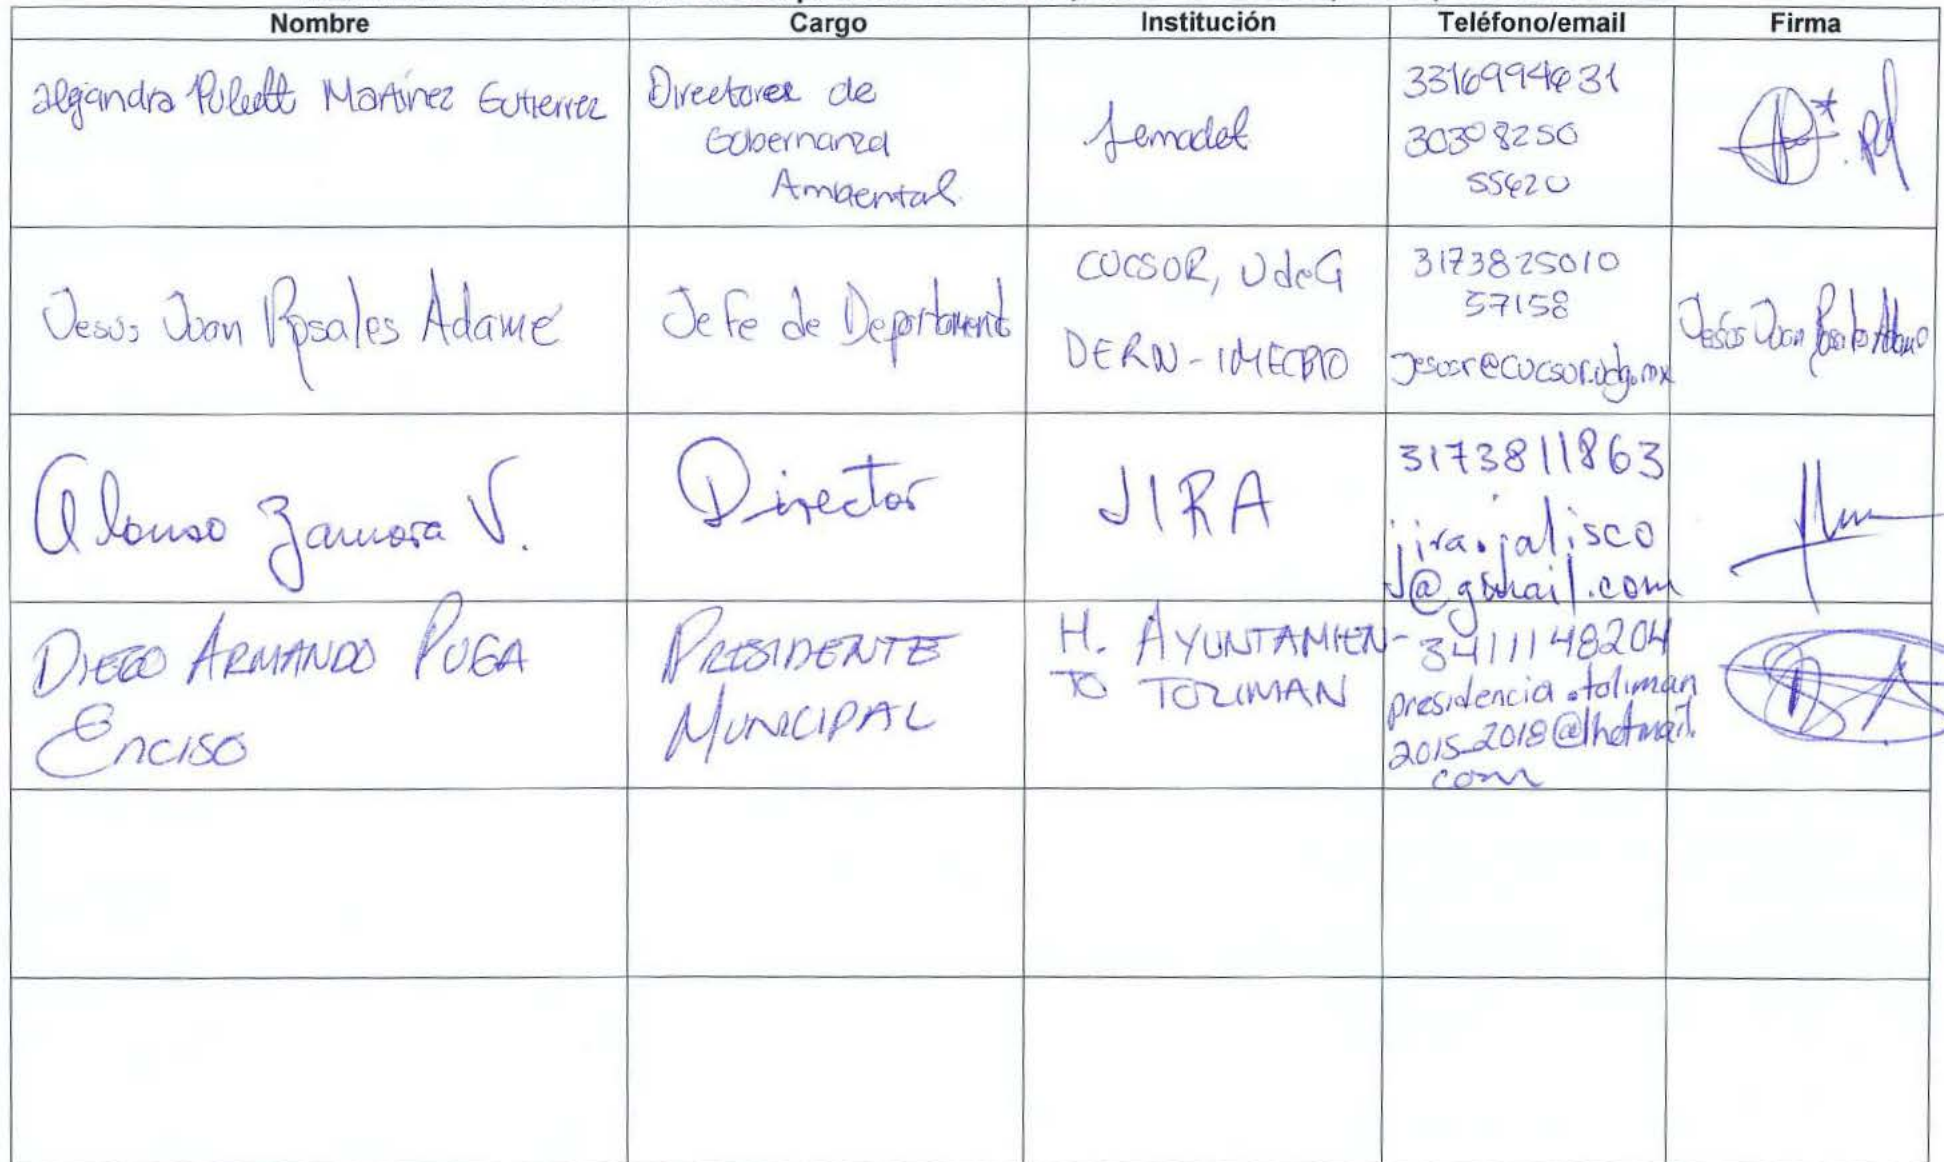 Nombre Cargo Institución Teléfono/email Firma
alejandra Martínez Gutierrez
Directora de
Gobernanza
Ambiental
Semadet
3316994631
30308250
55620
Jesús Juan Rosales Adame
Jefe de Departamento
CUCSUR, UdeG
DERN-IMECBIO
3173825010
57158
jesusr@cucsur.udg.mx
Jesús Juan Rosales Adame
Alonso Zamora V.
Director
JIRA
3173811863
jira.jalisco
@gmail.com
DIEGO ARMANDO PUGA
ENCISO
PRESIDENTE
MUNICIPAL
H. AYUNTAMIEN-
TO TOLIMAN
3411148204
presidencia.toliman
2015_2018@hotmail.
com